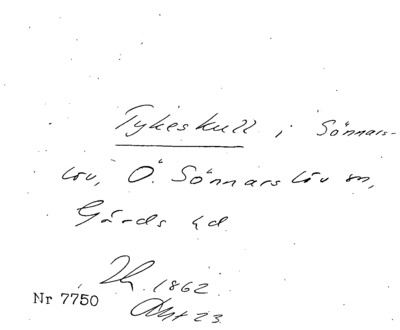 Tykeskull i Sönnars-
löv, Ö. Sönnarslöv sn,
Gärds hd
1862
Nr 7750
23